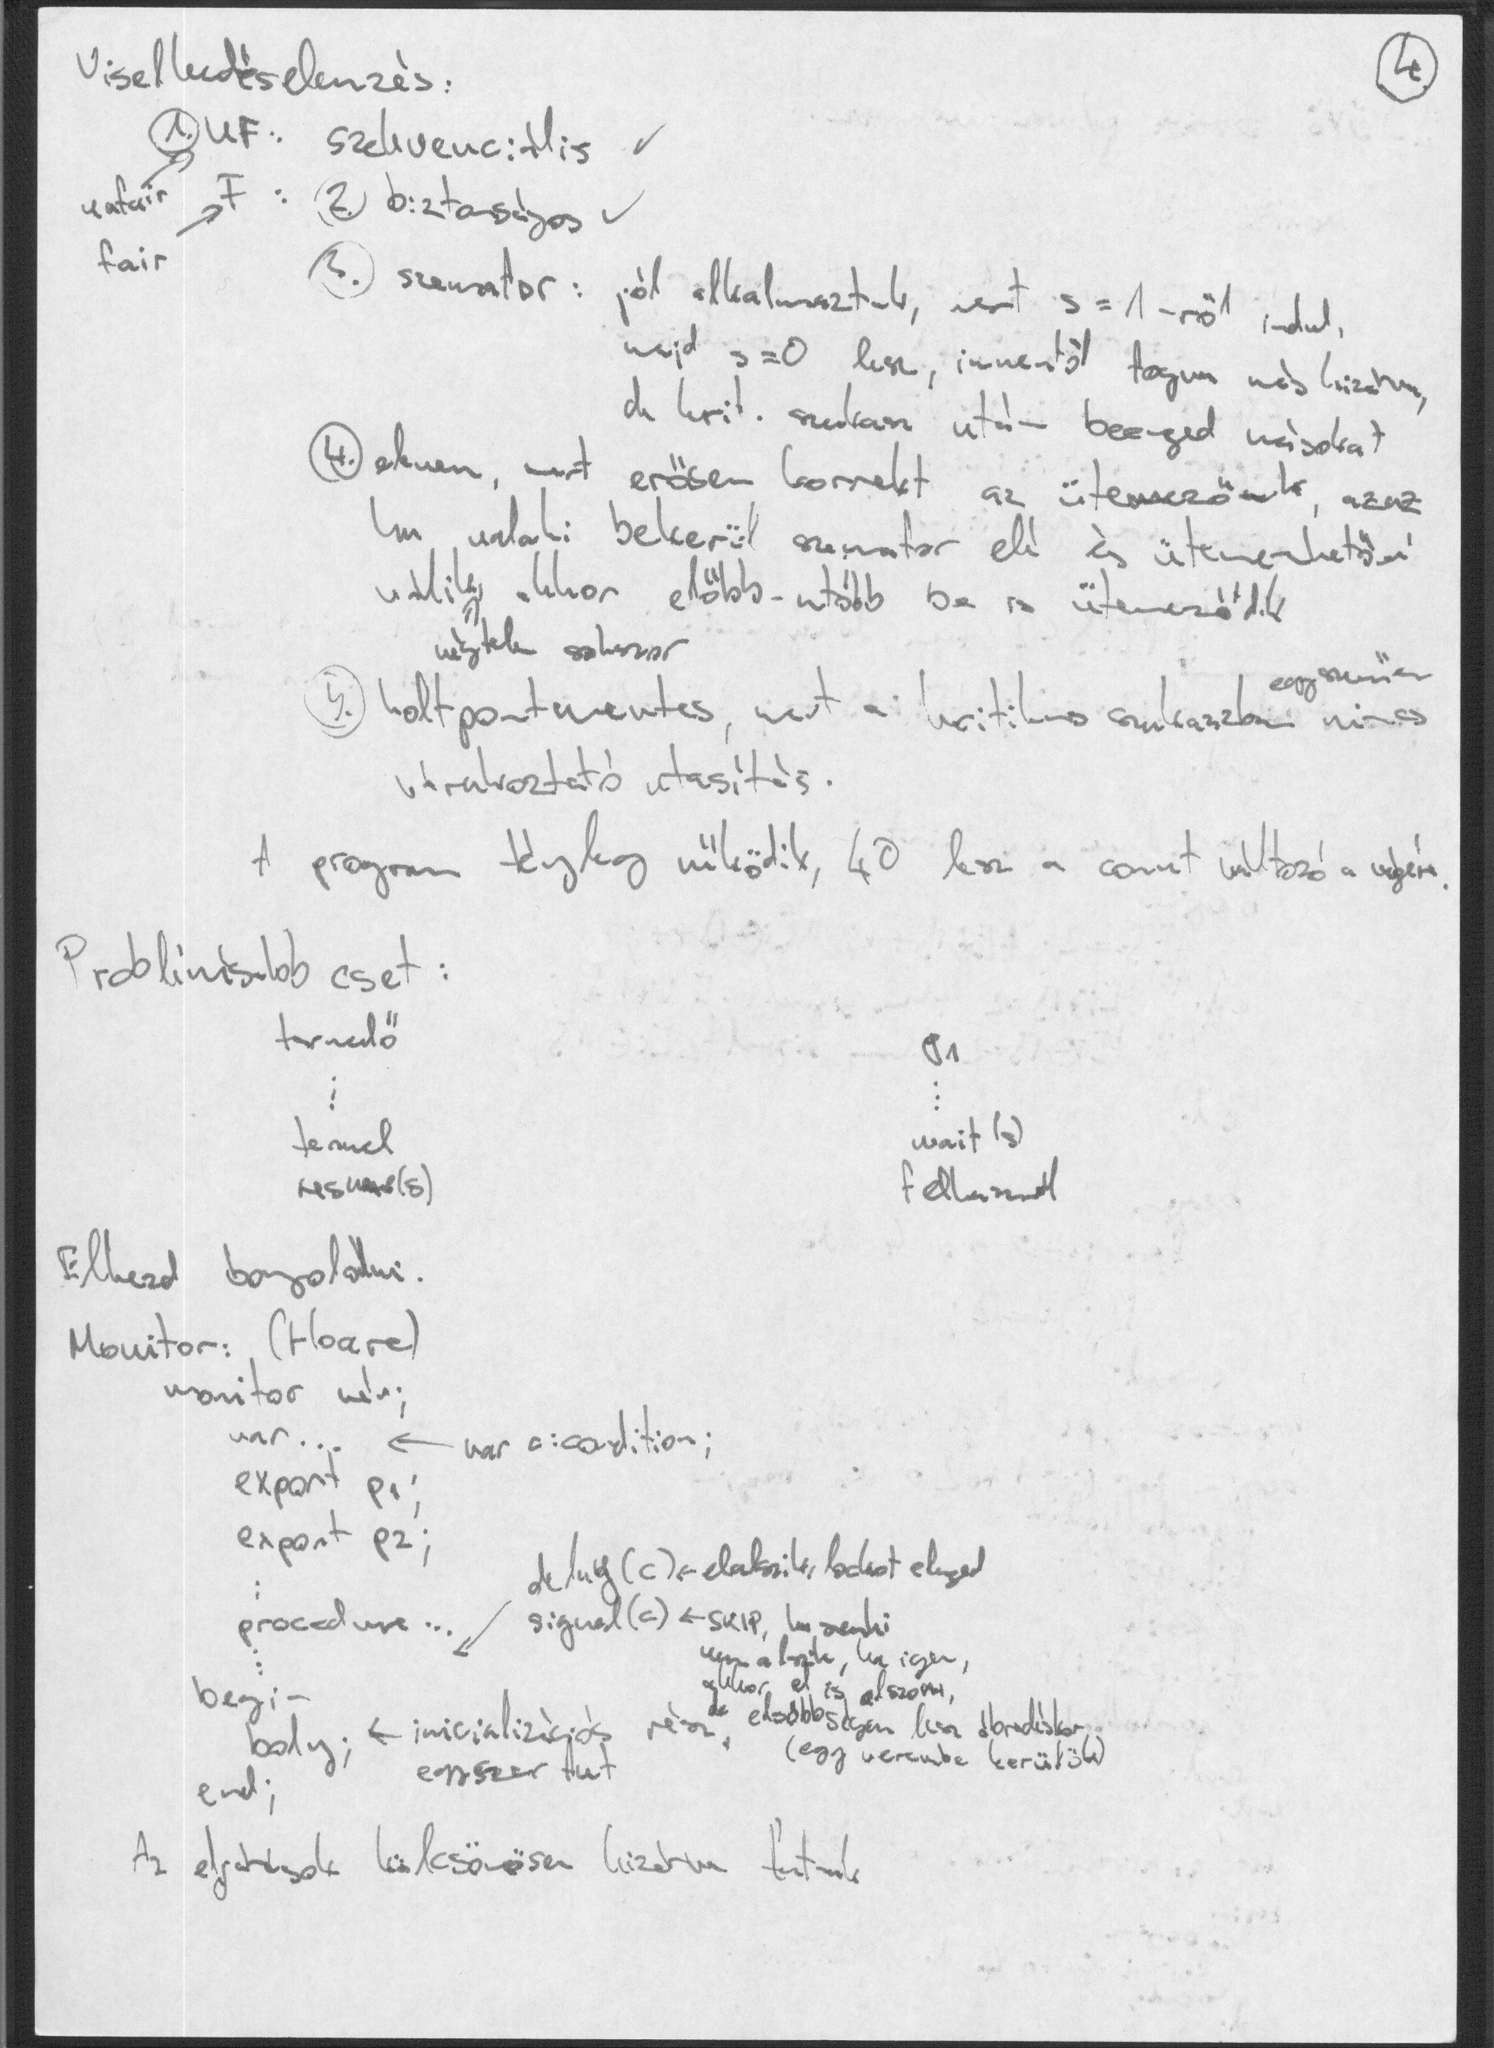 4.
Viselkedéselemzés:
1. UF: szekvenciális ✓
unfair F: 2. biztonságos ✓
fair
3. szemafor: jól alkalmaztuk, mert s=1-ről indul,
majd s=0 lesz, innentől fogva más kizárva,
de krit. szakasz után beenged másokat
4. eleven, mert erősen korrekt az ütemezőnk, azaz
ha valaki bekerül szemafor elé és ütemezhetővé
válik, akkor előbb-utóbb be is ütemeződik
végtelen sokszor
5. holtpontmentes, mert a kritikus szakaszban egyszerűen nincs
várakoztató utasítás.
A program tényleg működik, 40 lesz a count változó a végén.
Problémásabb eset:
termelő P1
⋮ ⋮
termel wait(s)
(s) felhasznál
Elkezd bonyolódni.
Monitor: (Hoare)
monitor név;
var... ← var c:condition;
export p1;
export p2;
⋮
delay(c) ← elalszik, lockot elenged
procedure ... signal(c) ← SKIP, ha senki
⋮ nem alszik, ha igen,
akkor el is alszom,
begin
body; ← inicializációs rész, de elsőbbségem lesz ébredéskor
egyszer fut (egy verembe kerülök)
end;
Az eljárások kölcsönösen kizárva futnak